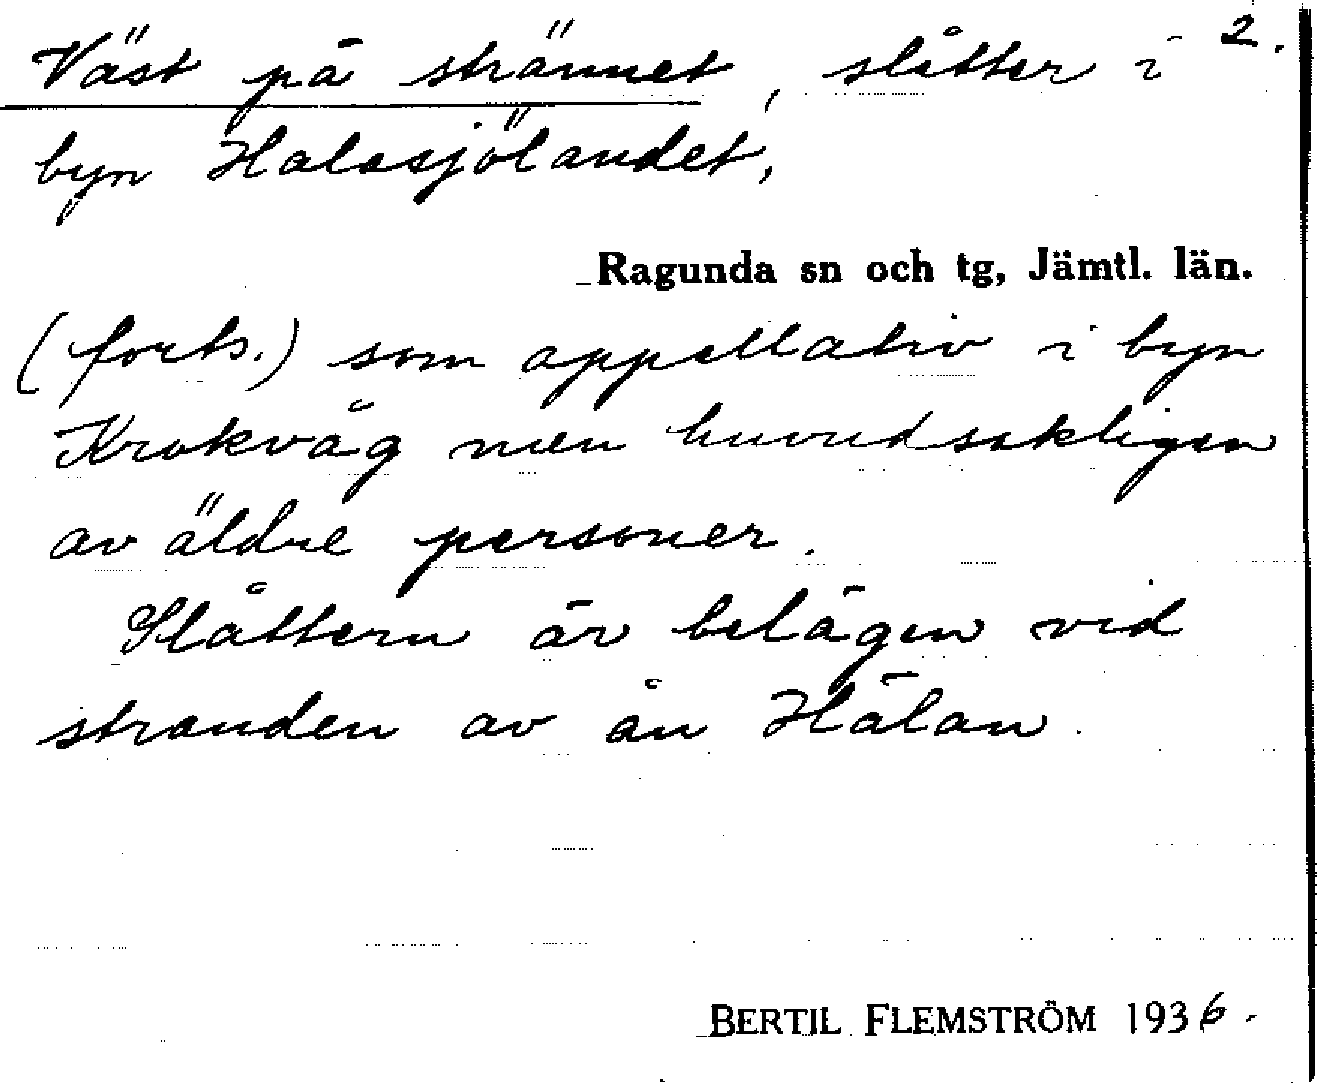 Väst på strännet, slåtter i 2.
byn Halasjölandet,
Ragunda sn och tg, Jämtl. län.
(forts.) som appellativ i byn
Krokvåg men huvudsakligen
av äldre personer.
Slåttern är belägen vid
stranden av ån Hälan.
BERTIL FLEMSTRÖM 1936.